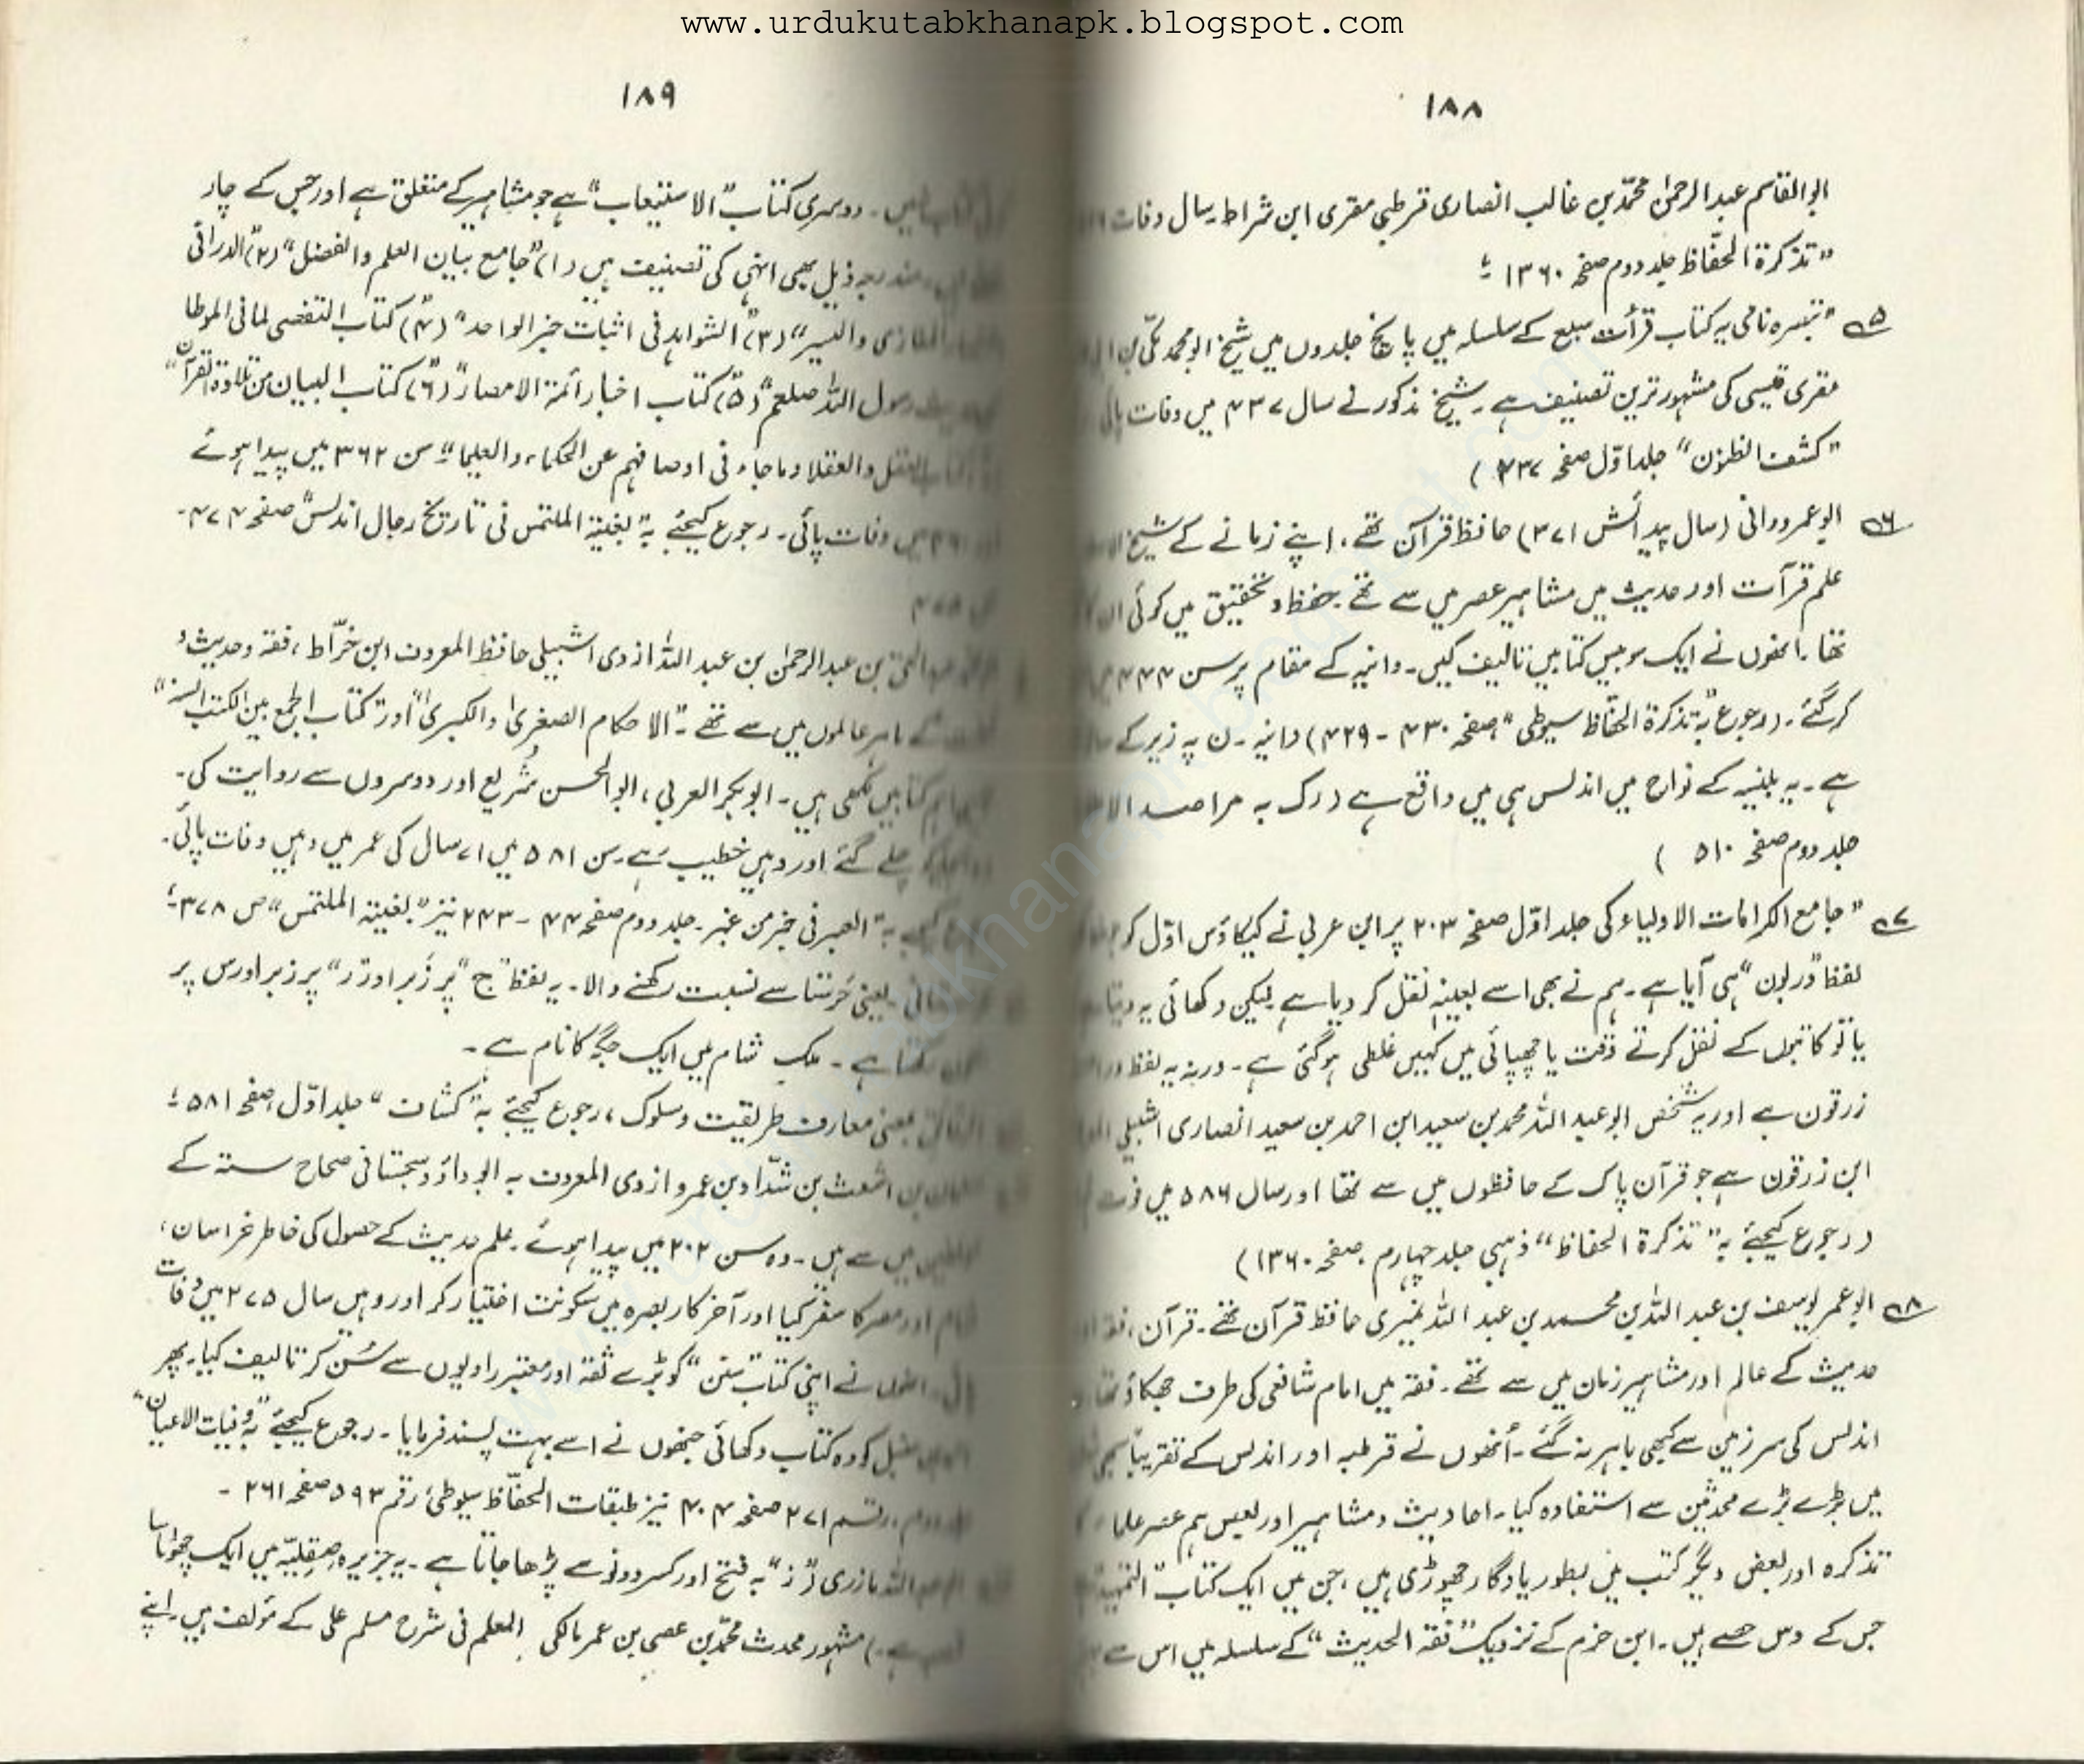 www.urdukutabkhanapk.blogspot.com
۱۸۸
ابوالقاسم عبدالرحمٰن محمّد بن غالب انصاری قرطبی مقری ابن شراط۔ سال وفات
"تذکرة الحفّاظ جلد دوم صفحہ ۱۳۶۰ ؛
۵ "تبصرہ نامی یہ کتاب قرأت سبع کے سلسلہ میں پانچ جلدوں میں شیخ ابو محمد مکّی بن
مقری قیسی کی مشہور ترین تصنیف ہے۔ شیخ مذکور نے سال ۴۳۷ میں وفات پائی
"کشف الظنون" جلد اوّل صفحہ )
۶ ابو عمرودانی (سال پیدائش ۳۷۱) حافظ قرآن تھے، اپنے زمانے کے شیخ
علم قرآت اور حدیث میں مشاہیر عصر میں سے تھے۔ حفظ و تحقیق میں کوئی ان
تھا۔ انھوں نے ایک سو بیس کتابیں تالیف کیں۔ دانیہ کے مقام پر سن ۴۴۴
کر گئے۔ (رجوع بہ "تذکرة الحفّاظ سیوطی" صفحہ ۴۳۰ - ۴۲۹) دانیہ۔ ن پہ زیر کے
ہے۔ یہ بلنیہ کے نواح میں اندلس ہی میں واقع ہے (رک بہ مراصد
جلد دوم صفحہ ۵۱۰ )
۷ "جامع الکرامات الاولیاء کی جلد اوّل صفحہ ۲۰۳ پر ابن عربی نے کیکاؤس اوّل کو
لفظ "درلون" ہی آیا ہے۔ ہم نے بھی اسے بعینہٖ نقل کر دیا ہے لیکن دکھائی یہ دیتا
یا تو کاتبوں کے نقل کرتے وقت یا چھپائی میں کہیں غلطی ہو گئی ہے۔ ورنہ یہ لفظ
زرقون ہے اور یہ شخص ابو عبد اللہ محمد بن سعید ابن احمد بن سعید انصاری اشبیلی
ابن زرقون ہے جو قرآن پاک کے حافظوں میں سے تھا اور سال ۵۸۶ میں فوت
(رجوع کیجئے بہ "تذکرة الحفاظ" ذہبی جلد چہارم۔ صفحہ ۱۳۶۰)
۸ ابو عمر یوسف بن عبد اللہ بن محمد بن عبد اللہ نمیری حافظ قرآن تھے۔ قرآن، فقہ
حدیث کے عالم اور مشاہیر زمان میں سے تھے۔ فقہ میں امام شافعی کی طرف جھکاؤ تھا
اندلس کی سرزمین سے کبھی باہر نہ گئے۔ اُنھوں نے قرطبہ اور اندلس کے تقریباً سبھی
میں بڑے بڑے محدثین سے استفادہ کیا۔ احادیث و مشاہیر اور بعض ہم عصر علماء
تذکرہ اور بعض دیگر کتب میں بطور یادگار چھوڑی ہیں، جن میں ایک کتاب "التمہید"
جس کے دس حصے ہیں۔ ابن حزم کے نزدیک "فقہ الحدیث" کے سلسلہ میں اس سے
۱۸۹
دوسری کتاب "الاستیعاب" ہے جو مشاہیر کے متعلق ہے اور جس کے چار
مندرجہ ذیل بھی انہی کی تصنیف ہیں (۱) "جامع بیان العلم والفضل" (۲) "الدرافی
المغازی والسیر" (۳) "الشواہد فی اثبات خبر الواحد" (۴) "کتاب التفصی لما فی الموطا
رسول اللہ صلعم" (۵) "کتاب اخبار ائمة الامصار" (۶) "کتاب البیان من تلاوة القرآن"
العقل والعقلا وما جاء فی اوصافہم عن الحکماء والعلما" سن ۳۶۲ میں پیدا ہوئے
میں وفات پائی۔ رجوع کیجئے بہ "بغیتہ الملتمس فی تاریخ رجال اندلس" صفحہ ۴۷۴۔
بن عبدالرحمٰن بن عبد اللہ ازدی اشبیلی حافظ المعروف ابن خرّاط، فقہ و حدیث و
کے ماہر عالموں میں سے تھے۔ "الاحکام الصغریٰ والکبریٰ" اور "کتاب الجمع بین الکتب الستہ"
اہم کتابیں لکھی ہیں۔ ابوبکر العربی، ابو الحسن شُریع اور دوسروں سے روایت کی۔
چلے گئے اور وہیں خطیب رہے۔ سن ۵۸۱ میں ۷۱ سال کی عمر میں وہیں وفات پائی۔
بہ "العبر فی خبر من غبر۔ جلد دوم صفحہ ۴۴ - ۲۴۳ نیز "بغیتہ الملتمس" ص ۳۷۸؛
یعنی حَرستا سے نسبت رکھنے والا۔ یہ لفظ "ح" پر زَبر اور "ر" پر زبر اور س پر
رکھتا ہے۔ ملک شام میں ایک جگہ کا نام ہے۔
بمعنی معارف طریقیت و سلوک، رجوع کیجئے بہ "کشاف" جلد اوّل صفحہ ۵۸۱ ؛
بن اشعث بن شدّاد بن عمرو ازدی المعروف بہ ابو داؤد سجستانی صحاح ستہ کے
میں سے ہیں۔ وہ سن ۲۰۲ میں پیدا ہوئے۔ علم حدیث کے حصول کی خاطر خراسان،
شام اور مصر کا سفر کیا اور آخر کار بصرہ میں سکونت اختیار کر اور وہیں سال ۲۷۵ میں وفات
انھوں نے اپنی کتاب "سنن" کو بڑے ثقہ اور معتبر راویوں سے سُن کر تالیف کیا۔ پھر
حنبل کو وہ کتاب دکھائی جنھوں نے اسے بہت پسند فرمایا۔ رجوع کیجئے "بہ وفیات الاعیان"
دوم۔ رقم ۲۷۱ صفحہ ۴۰۴ نیز طبقات الحفّاظ سیوطی، رقم ۵۹۳ صفحہ ۲۶۱ ۔
مازری "ز" بہ فتح اور کسر دونو سے پڑھا جاتا ہے۔ یہ جزیرہ صِقِلِیّہ میں ایک چھوٹا سا
ہے۔) مشہور محدث محمّد بن عمر مالکی المعلم فی شرح مسلم علی کے مؤلف ہیں۔ اپنے